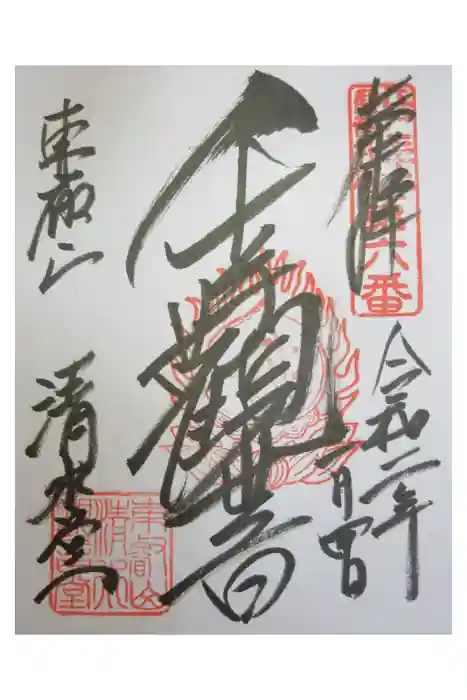 奉拝
六番
令和二年
月四日
千手観世音
東叡山
清水堂
東叡山
清水
観音堂